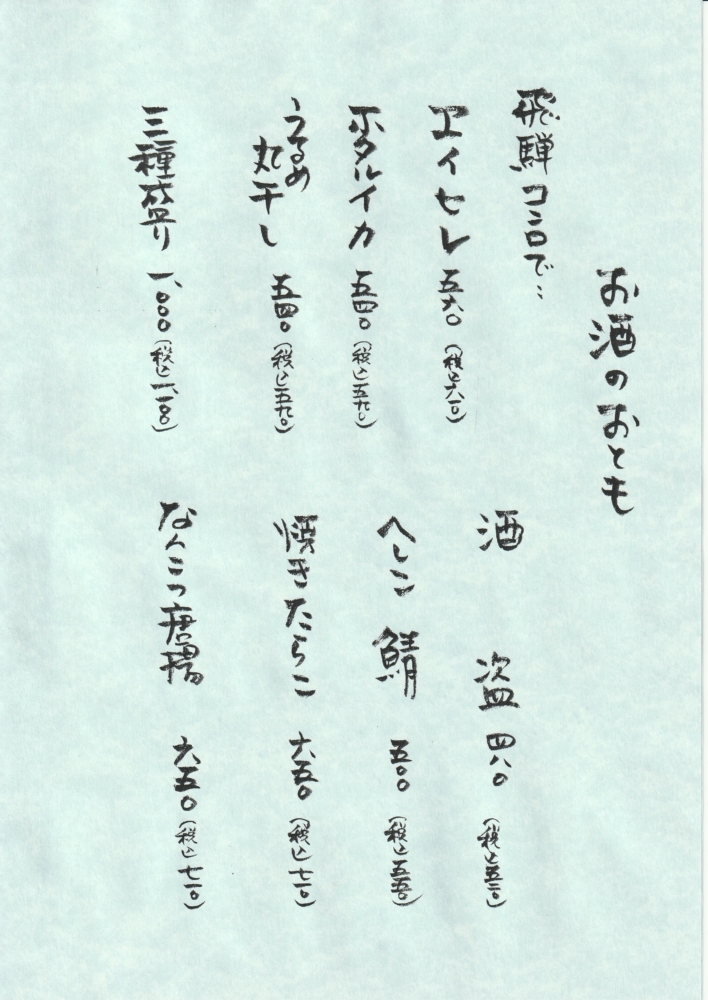 お酒のおとも
飛騨コンロで…
エイヒレ 五六〇（税込六一〇）
ホタルイカ 五四〇（税込五九〇）
うるめ
丸干し 五四〇（税込五九〇）
三種盛り 一、〇〇〇（税込一、一〇〇）
酒盗 四八〇（税込五二〇）
へしこ 鯖 五〇〇（税込五五〇）
焼きたらこ 六五〇（税込七一〇）
なんこつ唐揚 六五〇（税込七一〇）